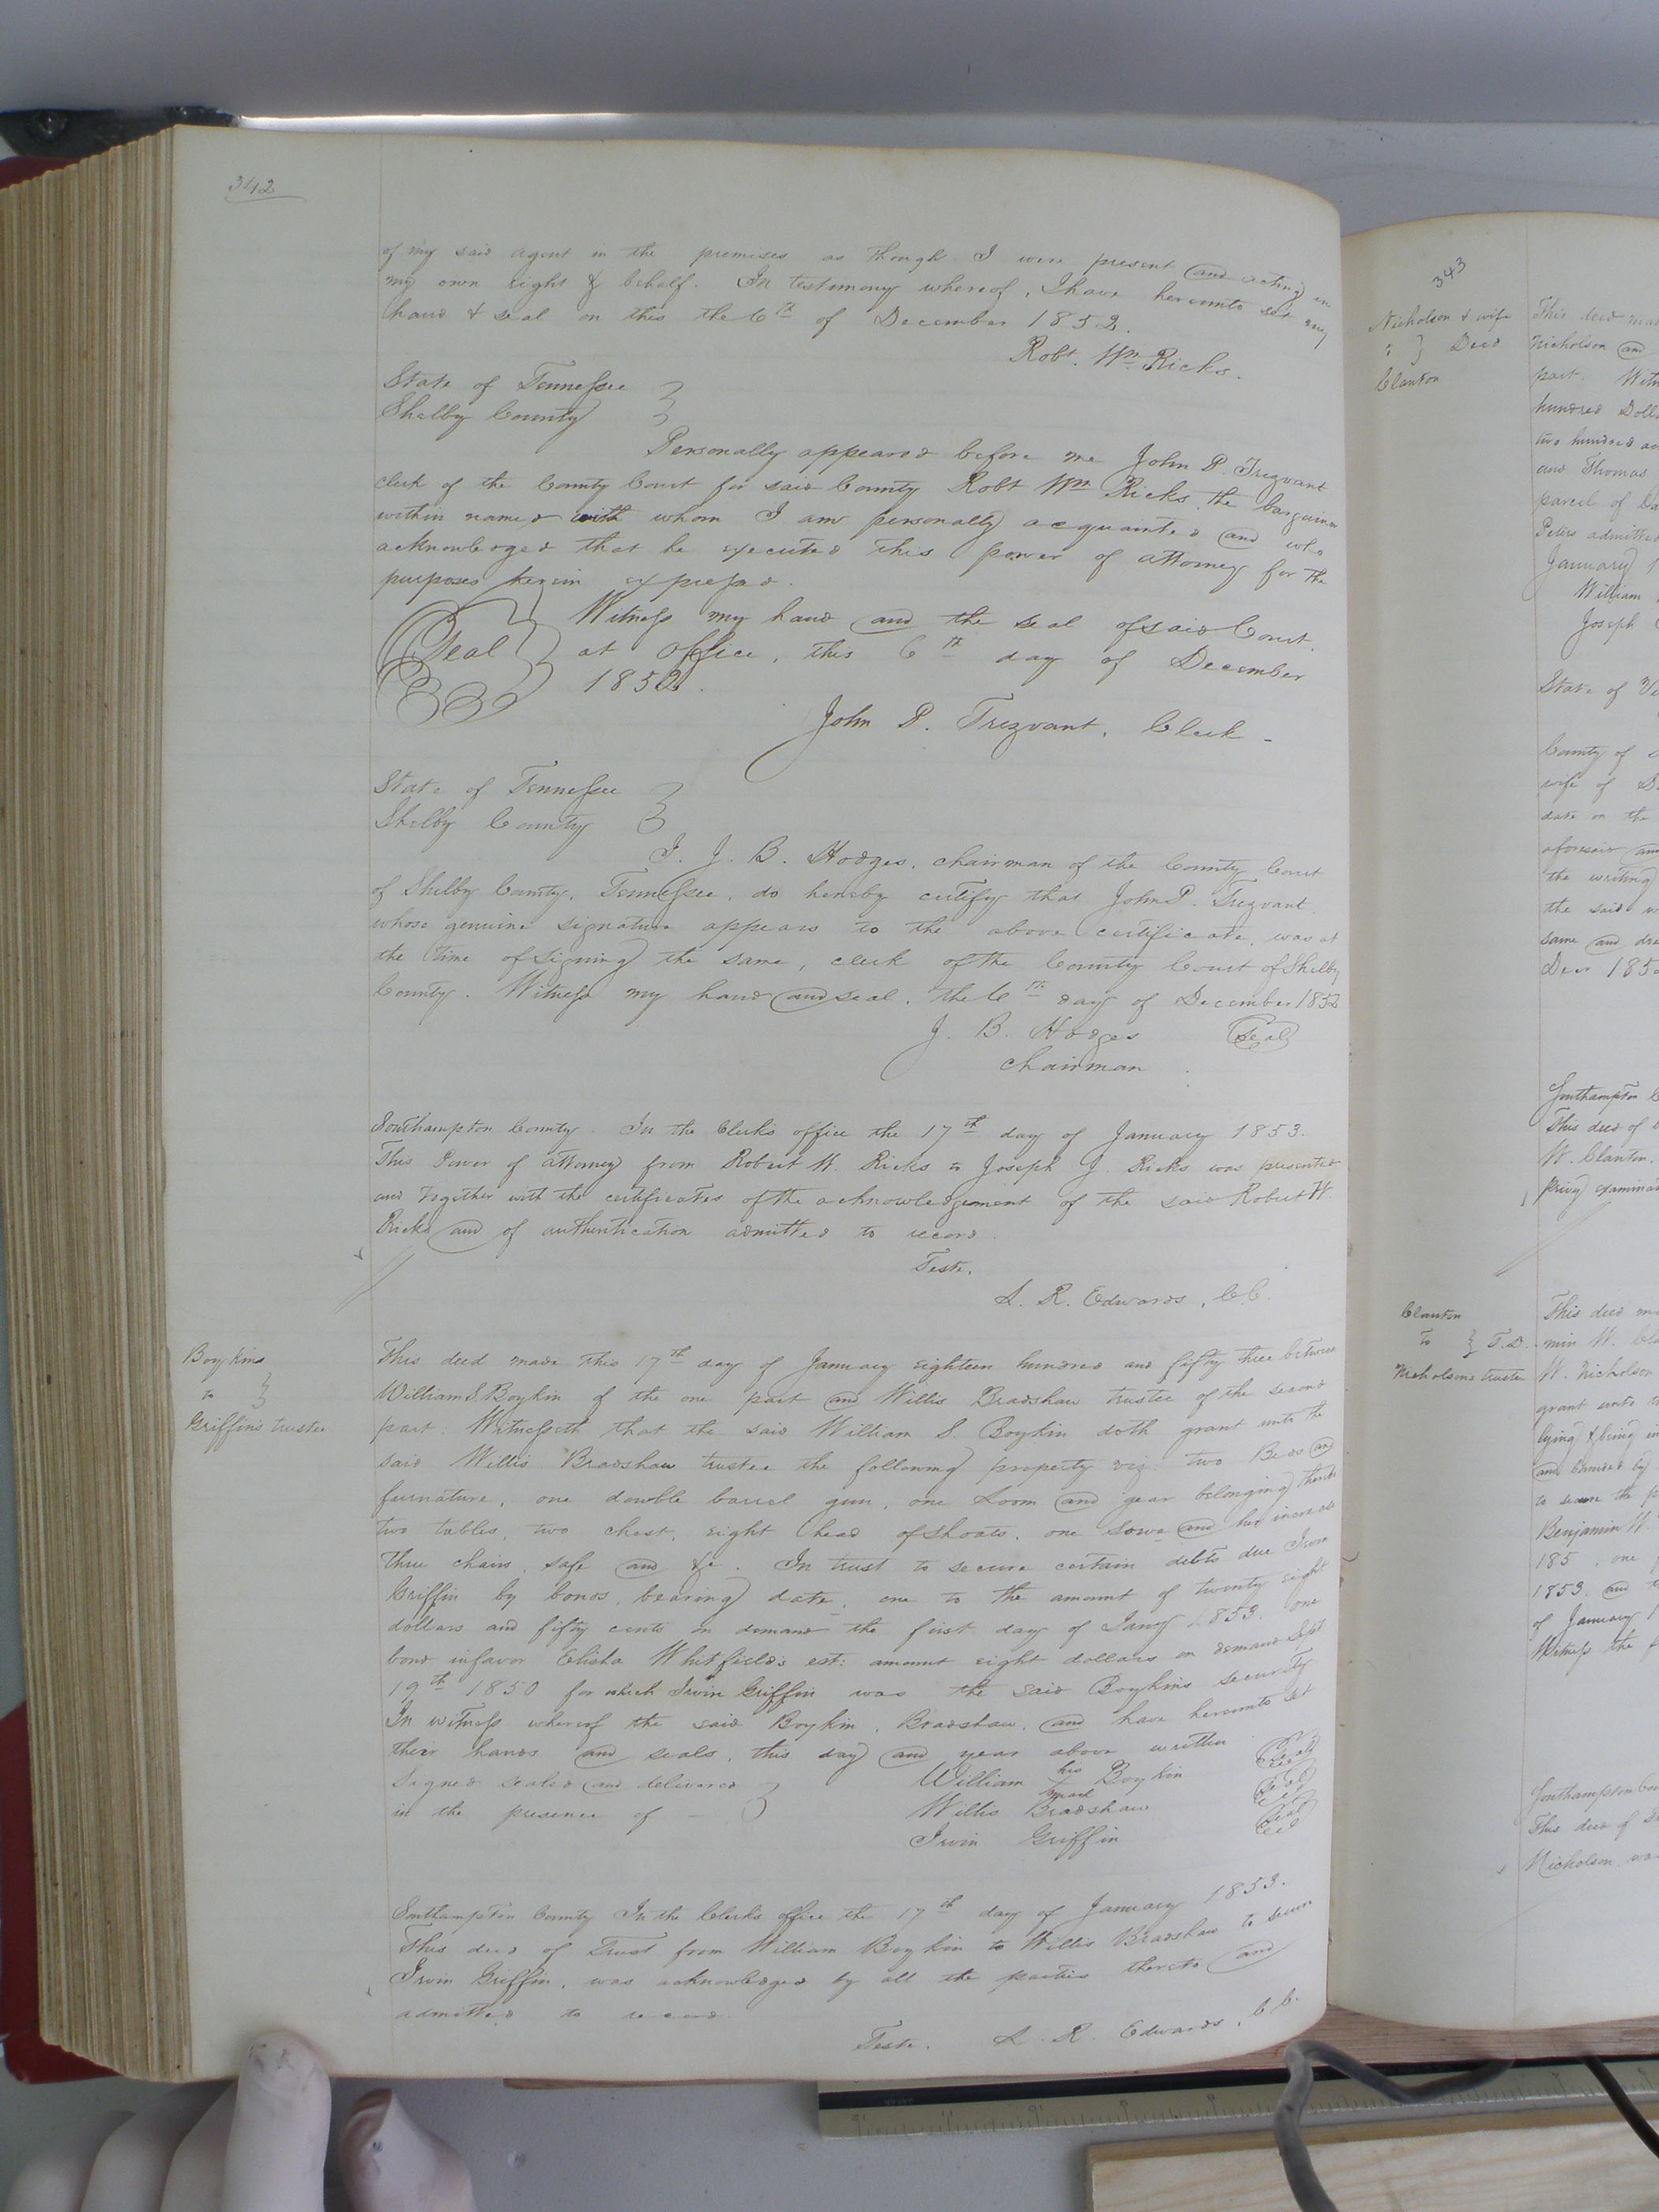 342
of my said agent in the premises as though I were present and acting in
my own right & behalf. In testimony whereof, I have hereunto set my
hand & seal on this the 6th of December 1852.
Robt. Wm. Ricks.
State of Tennessee
Shelby County
Personally appeared before me John P. Trezvant
clerk of the County Court for said County Robt Wm Ricks, the bargainor
within named with whom I am personally acquainted and who
acknowledged that he executed this power of attorney for the
purposes herein expressed.
Witness my hand and the seal of said Court.
Seal at office, this 6th day of December
1852.
John P. Trezvant, Clerk
State of Tennessee
Shelby County
I. J. B. Hodges, chairman of the County Court
of Shelby County, Tennessee, do hereby certify that John P. Trezvant
whose genuine signature appears to the above certificate, was at
the time of signing the same, clerk of the County Court of Shelby
County. Witness my hand and seal, the 6th day of December 1852
J. B. Hodges Seal
chairman
Southampton County. In the Clerk's office the 17th day of January 1853.
This Power of attorney from Robert W. Ricks to Joseph J. Ricks was presented
and together with the certificates of the acknowledgement of the said Robert W.
Ricks and of authentication admitted to record.
Teste,
L. R. Edwards, C.C.
Boykins
to
Griffin's trustee
This deed made this 17th day of January eighteen hundred and fifty three between
William S. Boykin of the one part and Willis Bradshaw trustee of the second
part: Witnesseth that the said William S. Boykin doth grant unto the
said Willis Bradshaw trustee the following property viz: two Beds and
furnature, one dowble barrel gun, one Loom and gear belonging thereto
two tables, two chest, eight head of shoats, one Sowe and her increase
three chairs, safe and &c. In trust to secure certain debts due Irvin
Griffin by bonds, bearing date, one to the amount of twenty eight
dollars and fifty cents on demand the first day of Jany 1853. one
bond in favor Elisha Whitfield's est: amount eight dollars on demand Sept
19th 1850 for which Irvin Griffin was the said Boykins security
In witness whereof the said Boykin, Bradshaw, and have hereunto set
their hands and seals, this day and year above written.
Signed sealed and delivered
in the presence of
William his mark Boykin Seal
Willis Bradshaw Seal
Irvin Griffin Seal
Southampton County In the Clerk's office the 17th day of January 1853.
This deed of Trust from William Boykin to Willis Bradshaw to secure
Irvin Griffin, was acknowledged by all the parties thereto and
admitted to record.
Teste. L. R. Edwards, C.C.
343
Nicholson & wife
Deed
Clanton
This deed
Nicholson and
part. Witn
hundred Doll
two hundred
and Thomas
parcel of La
Peters admitted
January 1
William
Joseph
State of Vi
County of
wife of D
date on the
aforesaid and
the writing
the said
same and
Decr 185
Southampton C
This deed of
W. Clanton,
privy examina
Clanton
to T.D.
Nicholson's trustee
This deed
min W. Cla
W. Nicholson
grant unto
lying & being in
and bounded by
to secure the
Benjamin W.
185 , one
1853. and
of January 1
Witness the
Southampton Cou
This deed of
Nicholson, was